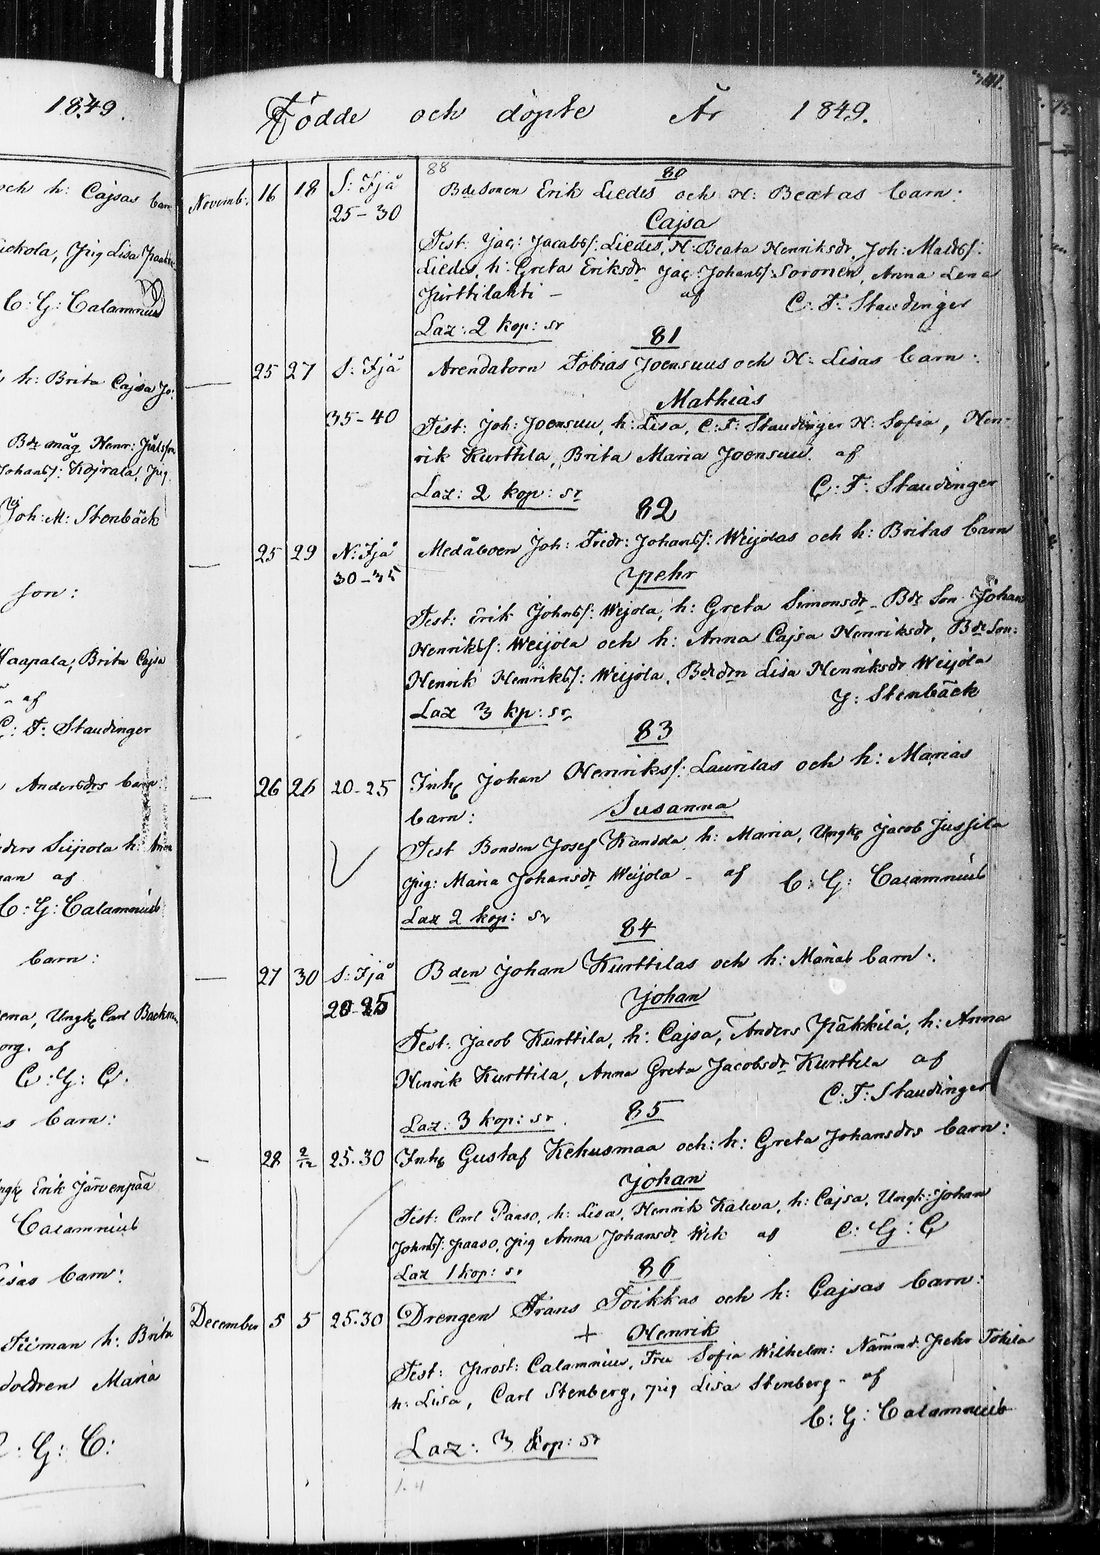 1849.
och h: Cajsas barn
Lisa
C: G: Calamnius
h: Brita Cajsa
Bde måg Henr:
Johansf: Koprala, pig
Joh: M: Stenbäck
son:
Haapala, Brita Cajsa
af
C: F: Staudinger
Andersdrs barn
h:
af
C: G: Calamnius
barn:
Ungk Carl Backman
af
C: G: C.
barn:
Erik Järvenpää
Calamnius
Lisas barn:
h: Brita
Maria
C: G: C:
Födde och döpte År 1849.
88 80
Novemb: 16 18 S: Ijå Bdesonen Erik Liedes och H: Beatas barn:
25-30 Cajsa
Test: Jac: Jacobsf: Liedes, H: Beata Henriksdr, Joh: Matdsf:
Liedes, h: Greta Eriksdr Jac: Johansf: Soronen, Anna Lena
Purttilahti - af C. F. Staudinger
Laz: 2 kop: sr
81
25 27 S: Ijå Arendatorn Tobias Joensuus och H: Lisas barn:
35-40 Mathias
Test: Joh: Joensuu, h: Lisa, C. F: Staudinger H: Sofia, Hen-
rik Kurttila, Brita Maria Joensuu. af
Laz: 2 kop: sr C. F. Staudinger
82
25 29 N: Ijå Medåboen Joh: Fredr: Johansf: Weijolas och h: Britas barn
30-35 Pehr
Test: Erik Johnsf: Weijola, h: Greta Simonsdr - Bde Son Johan
Henriksf: Weijola och h: Anna Cajsa Henriksdr, Bde Son:
Henrik Henriksf: Weijola, Bdedrn Lisa Henriksdr Weijola
Laz 3 kp: sr J: Stenbäck
83
26 26 20-25 Inh Johan Henriksf: Laurilas och h: Marias
barn: Susanna
Test Bonden Josef Kandola h: Maria, Ungk Jacob Jussila
pig: Maria Johansdr Weijola - af C: G: Calamnius
Laz 2 kop: sr
84
27 30 S: Ijå Bden Johan Kurttilas och h: Marias barn:
20-25 Johan
Test: Jacob Kurttila, h: Cajsa, Anders Päkkilä, h: Anna
Henrik Kurttila, Anna Greta Jacobsdr Kurttila af
C: F: Staudinger
Laz: 3 kop: sr
85
28 2/12 25.30 Inh Gustaf Kehusmaa och: h: Greta Johansdrs barn:
Johan
Test: Carl Paaso, h: Lisa, Henrik Kalwa, h: Cajsa, Ungk: Johan
Johnsf: Paaso, pig Anna Johansdr Wik af C: G: C
Laz 1 kop: sr
86
December 5 5 25.30 Drengen Frans Toikkas och h: Cajsas barn:
+ Henrik
Test: Prost: Calamnius, Fru Sofia Wilhelm: Nämmd. Pehr Tokila
h: Lisa, Carl Stenberg, pig Lisa Stenberg - af
C: G: Calamnius
Laz: 3 kop: sr